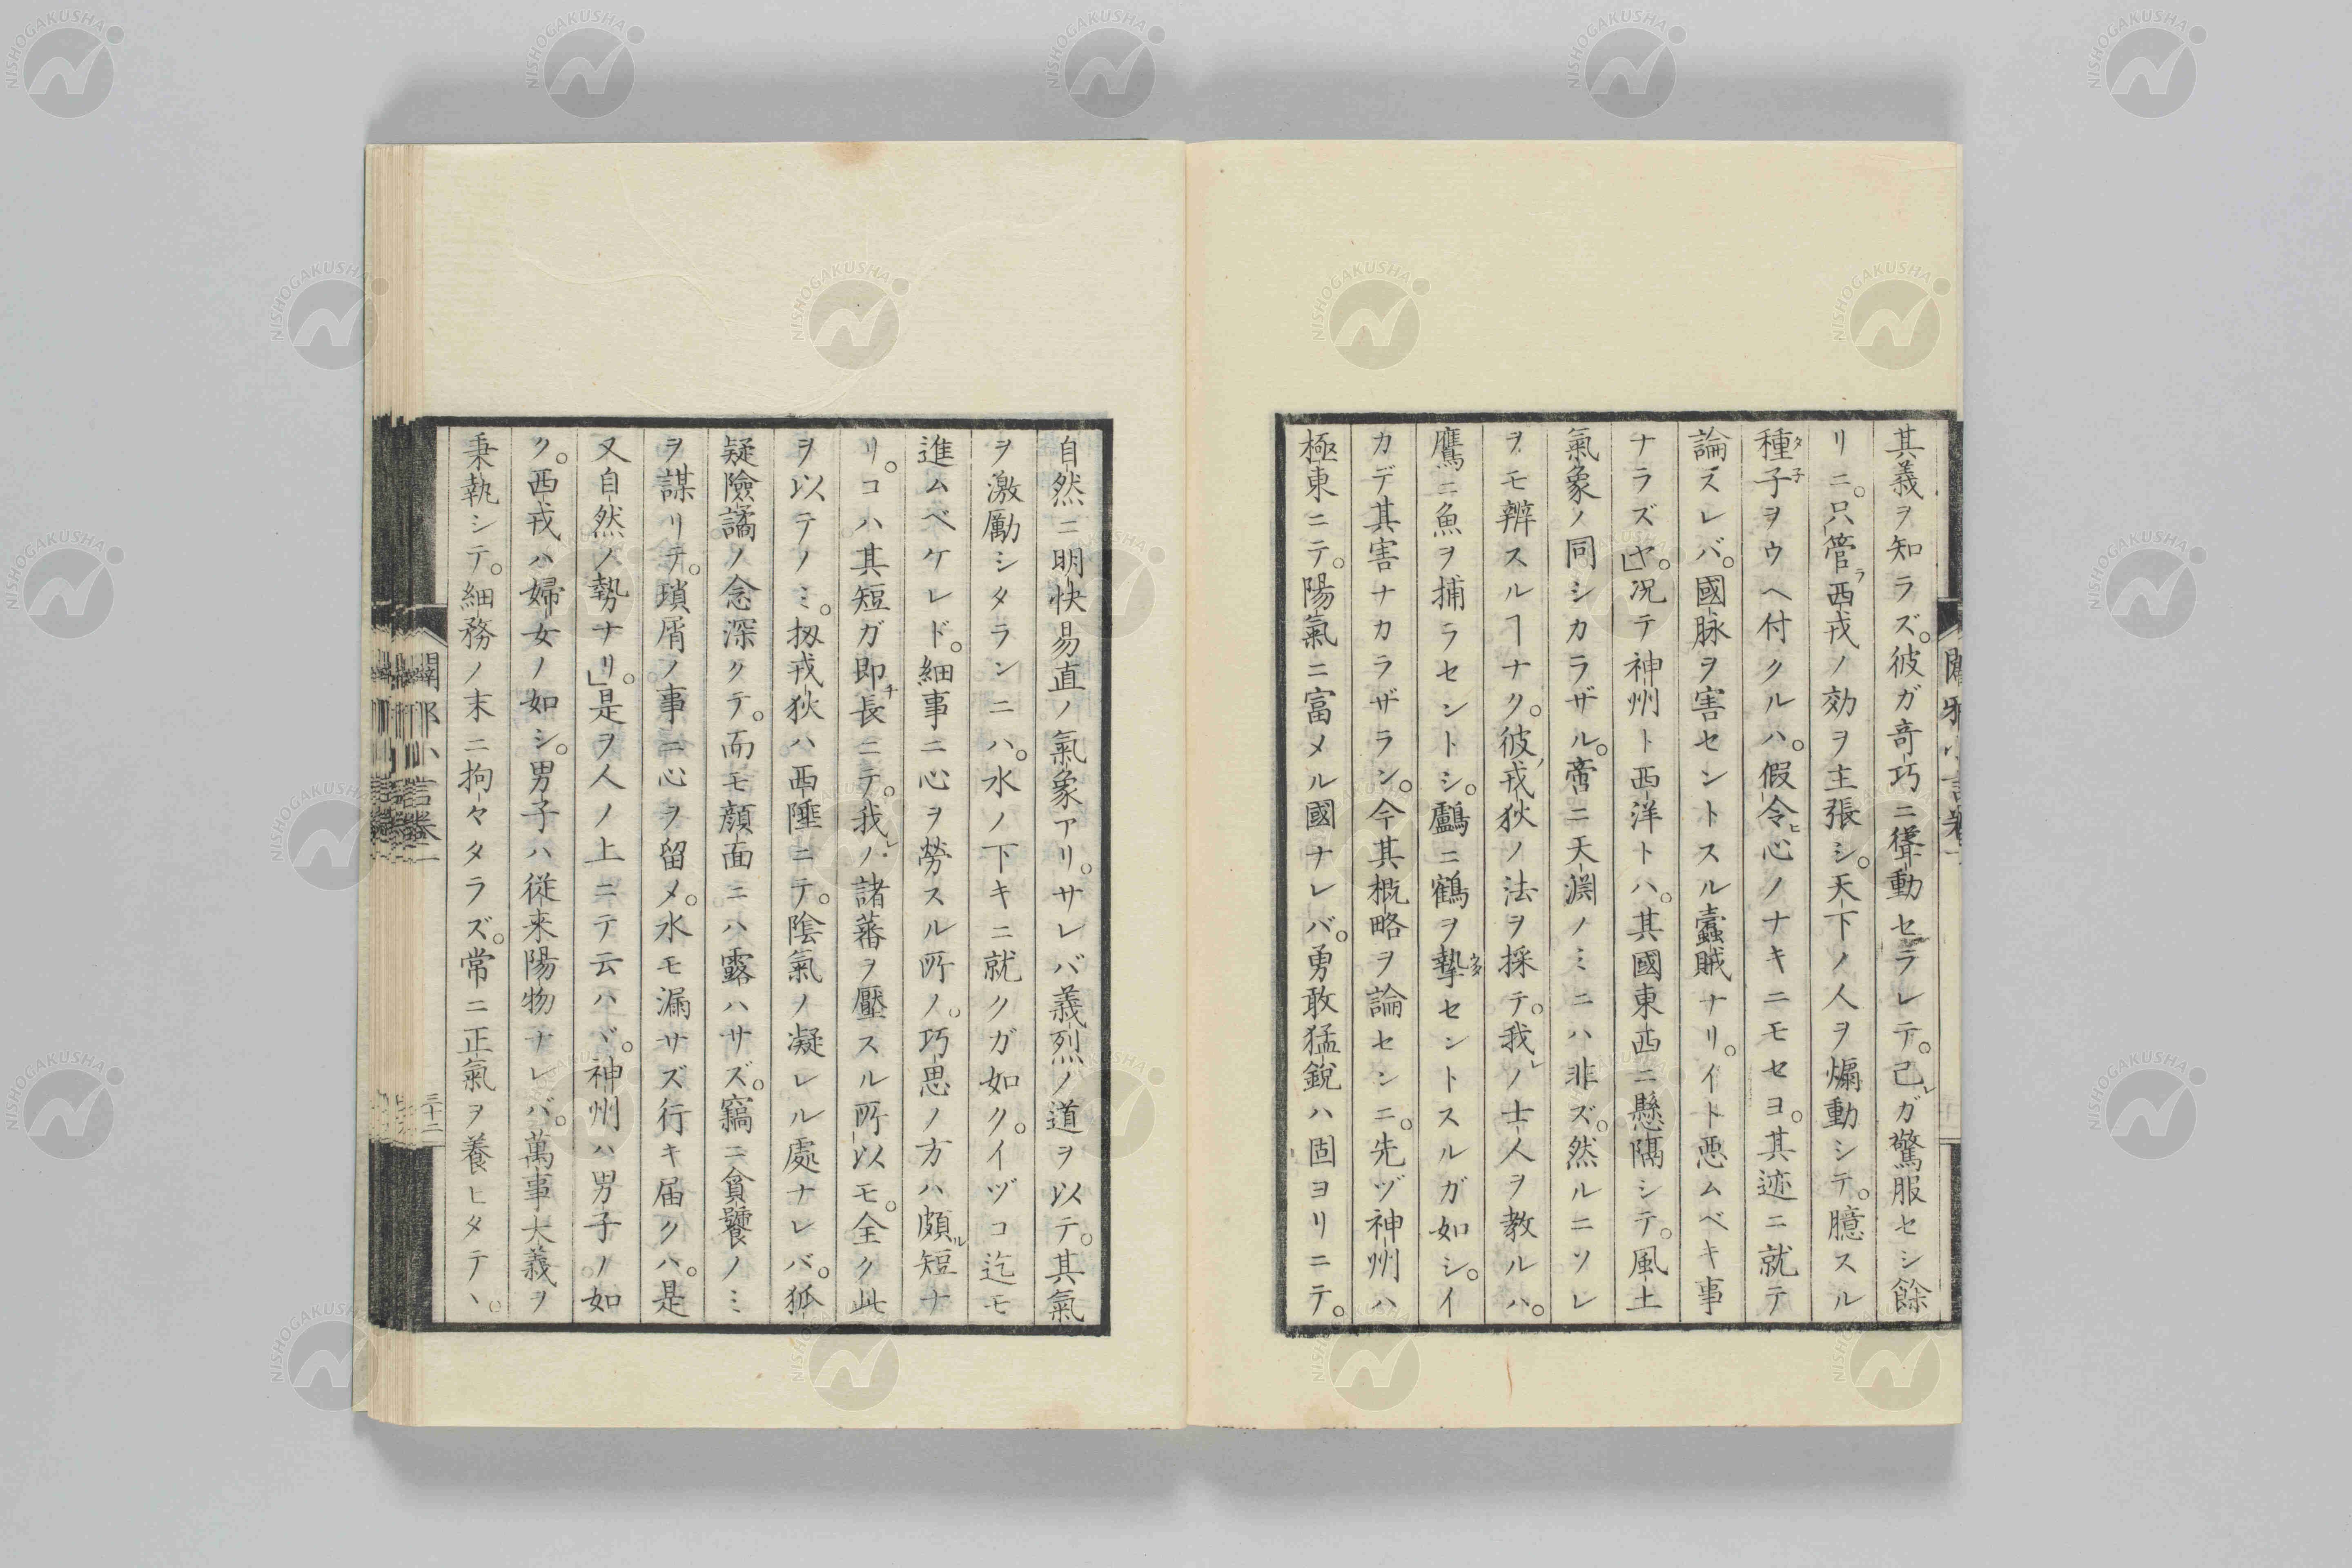 其義ヲ知ラズ。彼ガ奇巧ニ聳動セラレテ。己レガ驚服セシ餘
リニ。只管ラ西戎ノ効ヲ主張シ。天下ノ人ヲ煽動シテ。臆スル
種子ヲウヘ付クルハ。假令ヒ心ノナキニモセヨ。其迹ニ就テ
論ズレバ。國脉ヲ害セントスル蠹賊ナリ。イト悪ムベキ事
ナラズヤ。」况テ神州ト西洋トハ。其國東西ニ懸隔シテ。風土
氣象ノ同シカラザル。啻ニ天淵ノミニハ非ズ。然ルニソレ
ヲモ辨スルヿナク。彼ノ戎狄ノ法ヲ採テ。我レノ士人ヲ教ルハ。
鷹ニ魚ヲ捕ラセントシ。鸕ニ鶴ヲ摯セントスルガ如シ。イ
カデ其害ナカラザラン。今其概略ヲ論センニ。先ヅ神州ハ
極東ニテ。陽氣ニ富メル國ナレバ。勇敢猛鋭ハ固ヨリニテ。
闢邪小言卷一
自然ニ明快易直ノ氣象アリ。サレバ義烈ノ道ヲ以テ。其氣
ヲ激勵シタランニハ。水ノ下キニ就クガ如ク。イヅコ迄モ
進ムベケレド。細事ニ心ヲ勞スル所ノ。巧思ノ方ハ頗ル短ナ
リ。コハ其短ガ即チ長ニテ。我レノ諸蕃ヲ壓スル所以モ。全ク此
ヲ以テノミ。扨戎狄ハ西陲ニテ。陰氣ノ凝レル處ナレバ。狐
疑險譎ノ念深クテ。而モ顔面ニハ露ハサズ。竊ニ貪饕ノミ
ヲ謀リテ。瑣屑ノ事ニ心ヲ留メ。水モ漏サズ行キ届クハ。是
又自然ノ勢ナリ。」是ヲ人ノ上ニテ云ハヾ。神州ハ男子ノ如
ク。西戎ハ婦女ノ如シ。男子ハ従来陽物ナレバ。萬事大義ヲ
秉執シテ。細務ノ末ニ拘々タラズ。常ニ正氣ヲ養ヒタテヽ。
闢邪小言卷一
三十二
NISHOGAKUSHA